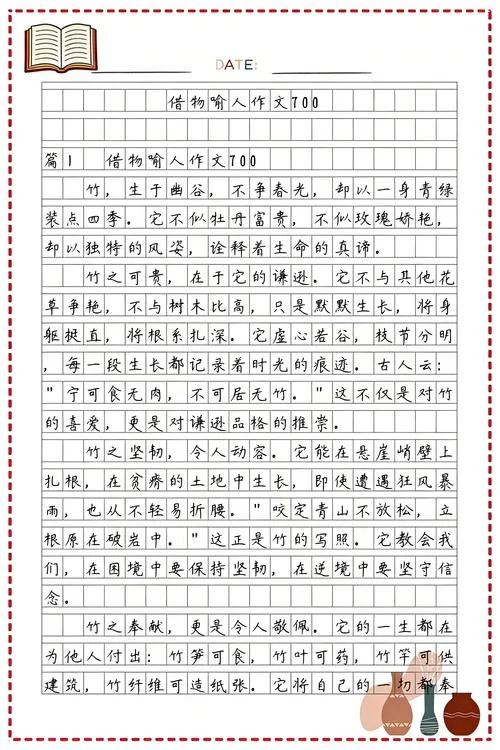 DATE:
借物喻人作文700
篇1 借物喻人作文700
竹，生于幽谷，不争春光，却以一身青绿
装点四季。它不似牡丹富贵，不似玫瑰娇艳，
却以独特的风姿，诠释着生命的真谛。
竹之可贵，在于它的谦逊。它不与其他花
草争艳，不与树木比高，只是默默生长，将身
躯挺直，将根系扎深。它虚心若谷，枝节分明
，每一段生长都记录着时光的痕迹。古人云：
"宁可食无肉，不可居无竹。"这不仅是对竹
的喜爱，更是对谦逊品格的推崇。
竹之坚韧，令人动容。它能在悬崖峭壁上
扎根，在贫瘠的土地中生长，即使遭遇狂风暴
雨，也从不轻易折腰。"咬定青山不放松，立
根原在破岩中。"这正是竹的写照。它教会我
们，在困境中要保持坚韧，在逆境中要坚守信
念。
竹之奉献，更是令人敬佩。它的一生都在
为他人付出：竹笋可食，竹叶可药，竹竿可供
建筑，竹纤维可造纸张。它将自己的一切都奉